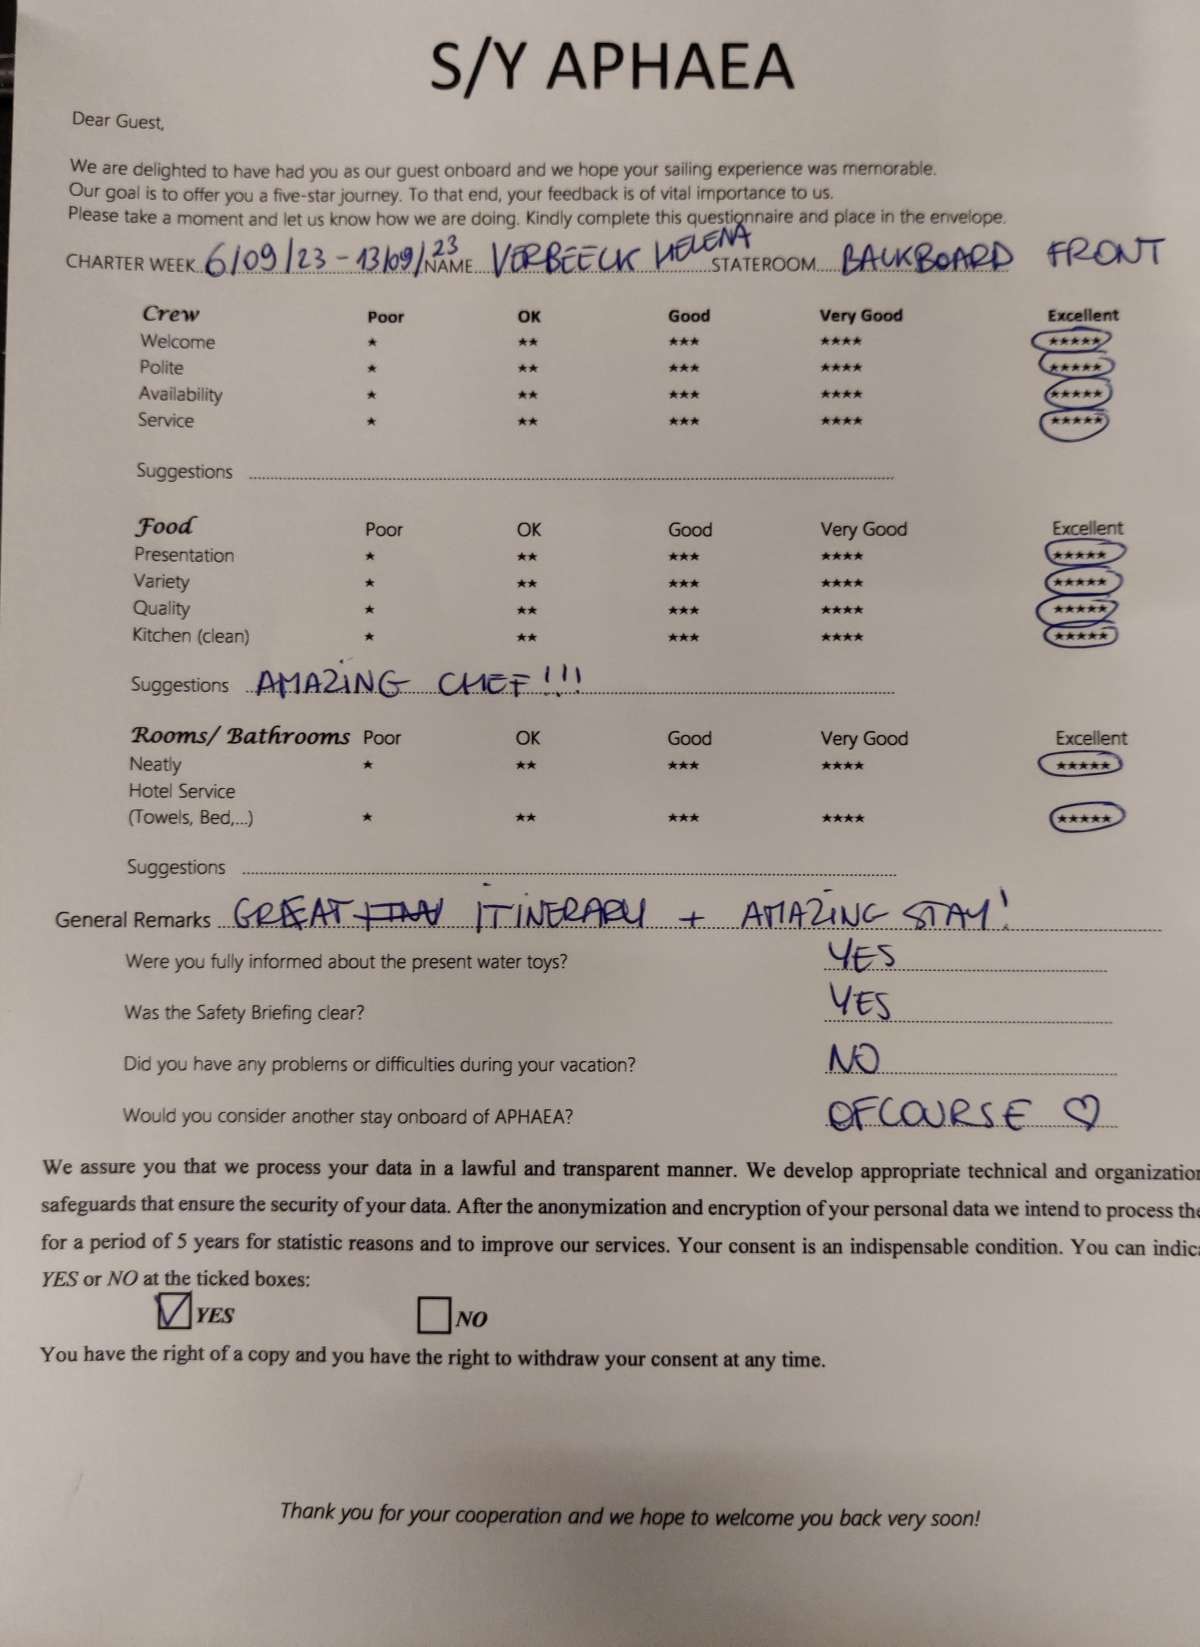 S/Y APHAEA
Dear Guest,
We are delighted to have had you as our guest onboard and we hope your sailing experience was memorable.
Our goal is to offer you a five-star journey. To that end, your feedback is of vital importance to us.
Please take a moment and let us know how we are doing. Kindly complete this questionnaire and place in the envelope.
CHARTER WEEK 6/09/23 - 13/09/23 NAME VERBEECK HELENA STATEROOM BACKBOARD FRONT
Crew Poor OK Good Very Good Excellent
Welcome ★ ★★ ★★★ ★★★★ ★★★★★
Polite ★ ★★ ★★★ ★★★★ ★★★★★
Availability ★ ★★ ★★★ ★★★★ ★★★★★
Service ★ ★★ ★★★ ★★★★ ★★★★★
Suggestions
Food Poor OK Good Very Good Excellent
Presentation ★ ★★ ★★★ ★★★★ ★★★★★
Variety ★ ★★ ★★★ ★★★★ ★★★★★
Quality ★ ★★ ★★★ ★★★★ ★★★★★
Kitchen (clean) ★ ★★ ★★★ ★★★★ ★★★★★
Suggestions AMAZING CHEF!!!
Rooms/ Bathrooms Poor OK Good Very Good Excellent
Neatly ★ ★★ ★★★ ★★★★ ★★★★★
Hotel Service
(Towels, Bed,...) ★ ★★ ★★★ ★★★★ ★★★★★
Suggestions
General Remarks GREAT ITINERARY + AMAZING STAY!
Were you fully informed about the present water toys? YES
Was the Safety Briefing clear? YES
Did you have any problems or difficulties during your vacation? NO
Would you consider another stay onboard of APHAEA? OFCOURSE ♡
We assure you that we process your data in a lawful and transparent manner. We develop appropriate technical and organization
safeguards that ensure the security of your data. After the anonymization and encryption of your personal data we intend to process the
for a period of 5 years for statistic reasons and to improve our services. Your consent is an indispensable condition. You can indica
YES or NO at the ticked boxes:
☑ YES ☐ NO
You have the right of a copy and you have the right to withdraw your consent at any time.
Thank you for your cooperation and we hope to welcome you back very soon!